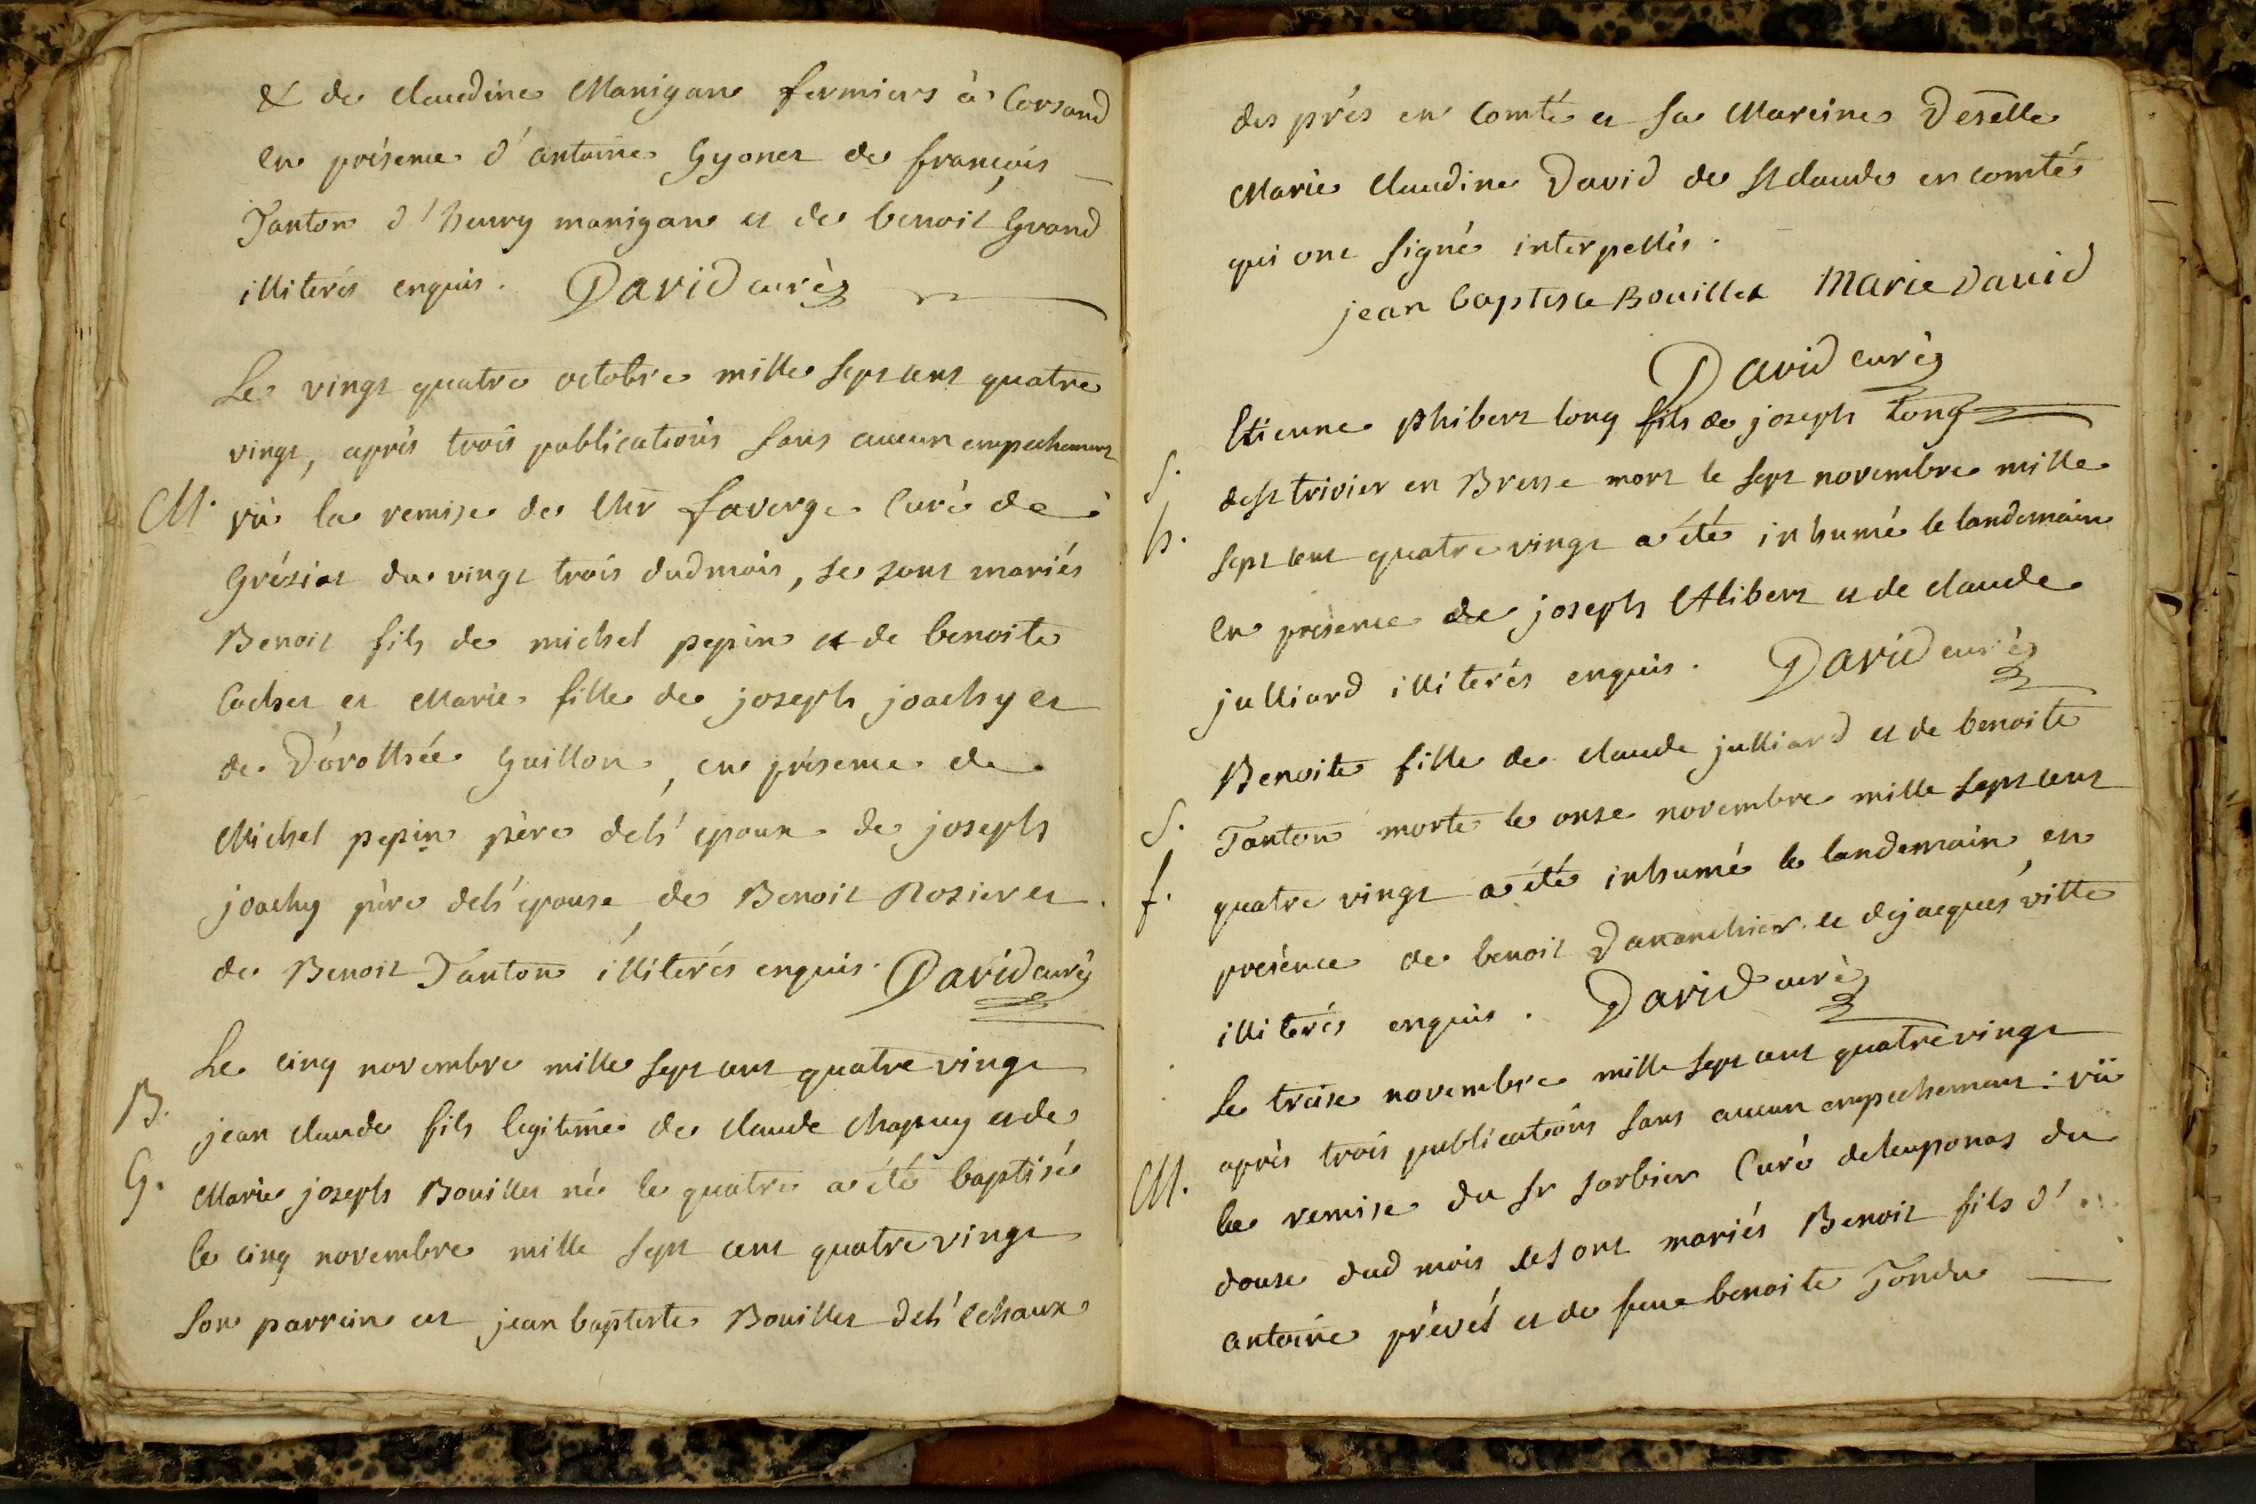 & de claudine Manigand fermiers à Corsand
en présence d'antoine Gyonet de françois
Tanton d'henry manigand et de benoit Grand
illiterés enquis. David curè
Le vingt quatre octobre mille sept cent quatre
vingt, après trois publications sans aucun empechement
M. vü la remise de Mr faverge Curé de
Gréziat du vingt trois dudmois, se sont mariés
Benoit fils de michel pepin et de benoite
Cochet et Marie fille de joseph joachy et
de Dorothée Guillon, en présence de
Michel pepin père del'epoux de joseph
joachy père del'epouse, de Benoit Rosier et
de Benoit Tanton illiterés enquis. David curè
Le cinq novembre mille sept cent quatre vingt
B. jean claude fils legitime de claude chapuy et de
G. Marie joseph Bouillet né le quatre a été baptisé
le cinq novembre mille sept cent quatre vingt
son parrein est jean baptiste Bouillet del'Echaux
des prés en Comté et sa Mareine Deselle
Marie Claudine David de St claude en comté
qui ont signé interpellés.
jean baptiste Bouillet Marie David
David curè
Etienne phibert long fils de joseph Long
S. dest trivier en Bresse mort le sept novembre mille
h. sept cent quatre vingt a été inhumé le landemain
en présence de joseph Alibert et de claude
julliard illiterés enquis. David curè
Benoite fille de claude julliard et de benoite
S. Tanton morte le onze novembre mille sept cent
f. quatre vingt a été inhumé le landemain en
presence de benoit Dananchier et de jacques vitte
illiterés enquis. David curè
Le treise novembre mille sept cent quatre vingt
après trois publications sans aucun empechement : vü
M. la remise du Sr sorbier Curé deleuponas du
douse dud mois se sont mariés Benoit fils d'
antoine prével et de feue benoite Tondu